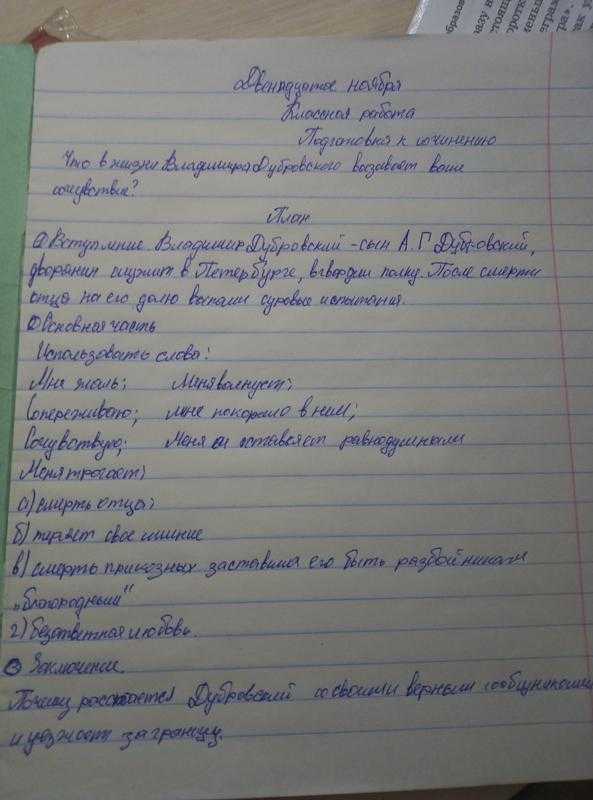 Двенадцатое ноября
Классная работа
Подготовка к сочинению
Что в жизни Владимира Дубровского вызывает ваше
сочувствие?
План
Вступление. Владимир Дубровский - сын А.Г Дубровский,
дворянин служит в Петербурге, в гвардии полку. После смерти
отца на его долю выпали суровые испытания.
Основная часть
Использовать слова:
Мне жаль; Меня волнует;
Сопереживаю; мне покорило в нём;
Сочувствую; Меня не оставляет равнодушными
Меня трогает;
а) смерть отца;
б) теряет свое имение
в) смерть приказных заставила его быть разбойником
„благородным"
г) безответная любовь.
Заключение.
Почему расстается Дубровский со своими верными сообщниками
и уезжает за границу.